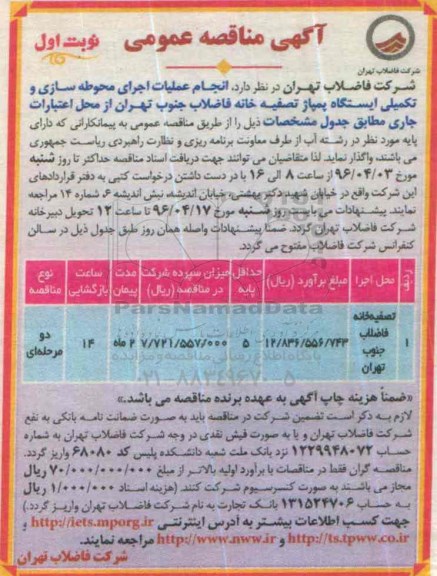 آگهی مناقصه عمومی
نوبت اول
شرکت فاضلاب تهران
شرکت فاضلاب تهران در نظر دارد، انجام عملیات اجرای محوطه سازی و
تکمیلی ایستگاه پمپاژ تصفیه خانه فاضلاب جنوب تهران از محل اعتبارات
جاری مطابق جدول مشخصات ذیل را از طریق مناقصه عمومی به پیمانکارانی که دارای
پایه مورد نظر در رشته آب از طرف معاونت برنامه ریزی و نظارت راهبردی ریاست جمهوری
می باشند، واگذار نماید. لذا متقاضیان می توانند جهت دریافت اسناد مناقصه حداکثر تا روز شنبه
مورخ ۹۶/۰۴/۰۳ از ساعت ۸ الی ۱۶ با در دست داشتن درخواست کتبی به دفتر قراردادهای
این شرکت واقع در خیابان شهید دکتر بهشتی، خیابان اندیشه، نبش اندیشه ۶، شماره ۱۴ مراجعه
نمایند. پیشنهادات می بایست روز شنبه مورخ ۹۶/۰۴/۱۷ تا ساعت ۱۲ تحویل دبیرخانه
شرکت فاضلاب تهران گردد. ضمناً پیشنهادات واصله همان روز طبق جدول ذیل در سالن
کنفرانس شرکت فاضلاب مفتوح می گردد.
ردیف محل اجرا مبلغ برآورد (ریال) حداقل پایه میزان سپرده شرکت در مناقصه (ریال) مدت پیمان ساعت بازگشایی نوع مناقصه
۱ تصفیه‌خانه فاضلاب جنوب تهران ۱۲/۸۳۶/۵۵۶/۷۴۳ ۵ ۷/۷۲۱/۵۵۷/۰۰۰ ۲ ماه ۱۴ دو مرحله‌ای
ParsNamadData
پایگاه اطلاع رسانی مناقصه و مزایده
۰۲۱-۸۸۳۴۹۶۷۰-۵
«ضمناً هزینه چاپ آگهی به عهده برنده مناقصه می باشد.»
لازم به ذکر است تضمین شرکت در مناقصه باید به صورت ضمانت نامه بانکی به نفع
شرکت فاضلاب تهران و یا به صورت فیش نقدی در وجه شرکت فاضلاب تهران به شماره
حساب ۱۲۲۹۹۴۸۰۷۲ نزد بانک ملت شعبه دانشکده پلیس کد ۶۸۰۸۰ واریز گردد.
مناقصه گران فقط در مناقصات با برآورد اولیه بالاتر از مبلغ ۷۰/۰۰۰/۰۰۰/۰۰۰ ریال
مجاز می باشند به صورت کنسرسیوم شرکت کنند. (هزینه اسناد ۱/۰۰۰/۰۰۰ ریال
به حساب ۱۳۱۵۲۴۷۰۶ بانک تجارت به نام شرکت فاضلاب تهران واریز گردد.)
جهت کسب اطلاعات بیشتر به آدرس اینترنتی http://iets.mporg.ir و
http://ts.tpww.co.ir و http://www.nww.ir مراجعه نمایند.
شرکت فاضلاب تهران